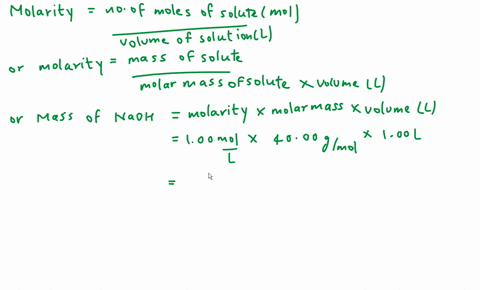 Molarity = no. of moles of solute (mol)
volume of solution (L)
or molarity = mass of solute
molar mass of solute × volume (L)
or Mass of NaOH = molarity × molar mass × volume (L)
= 1.00 mol/L × 40.00 g/mol × 1.00 L
=